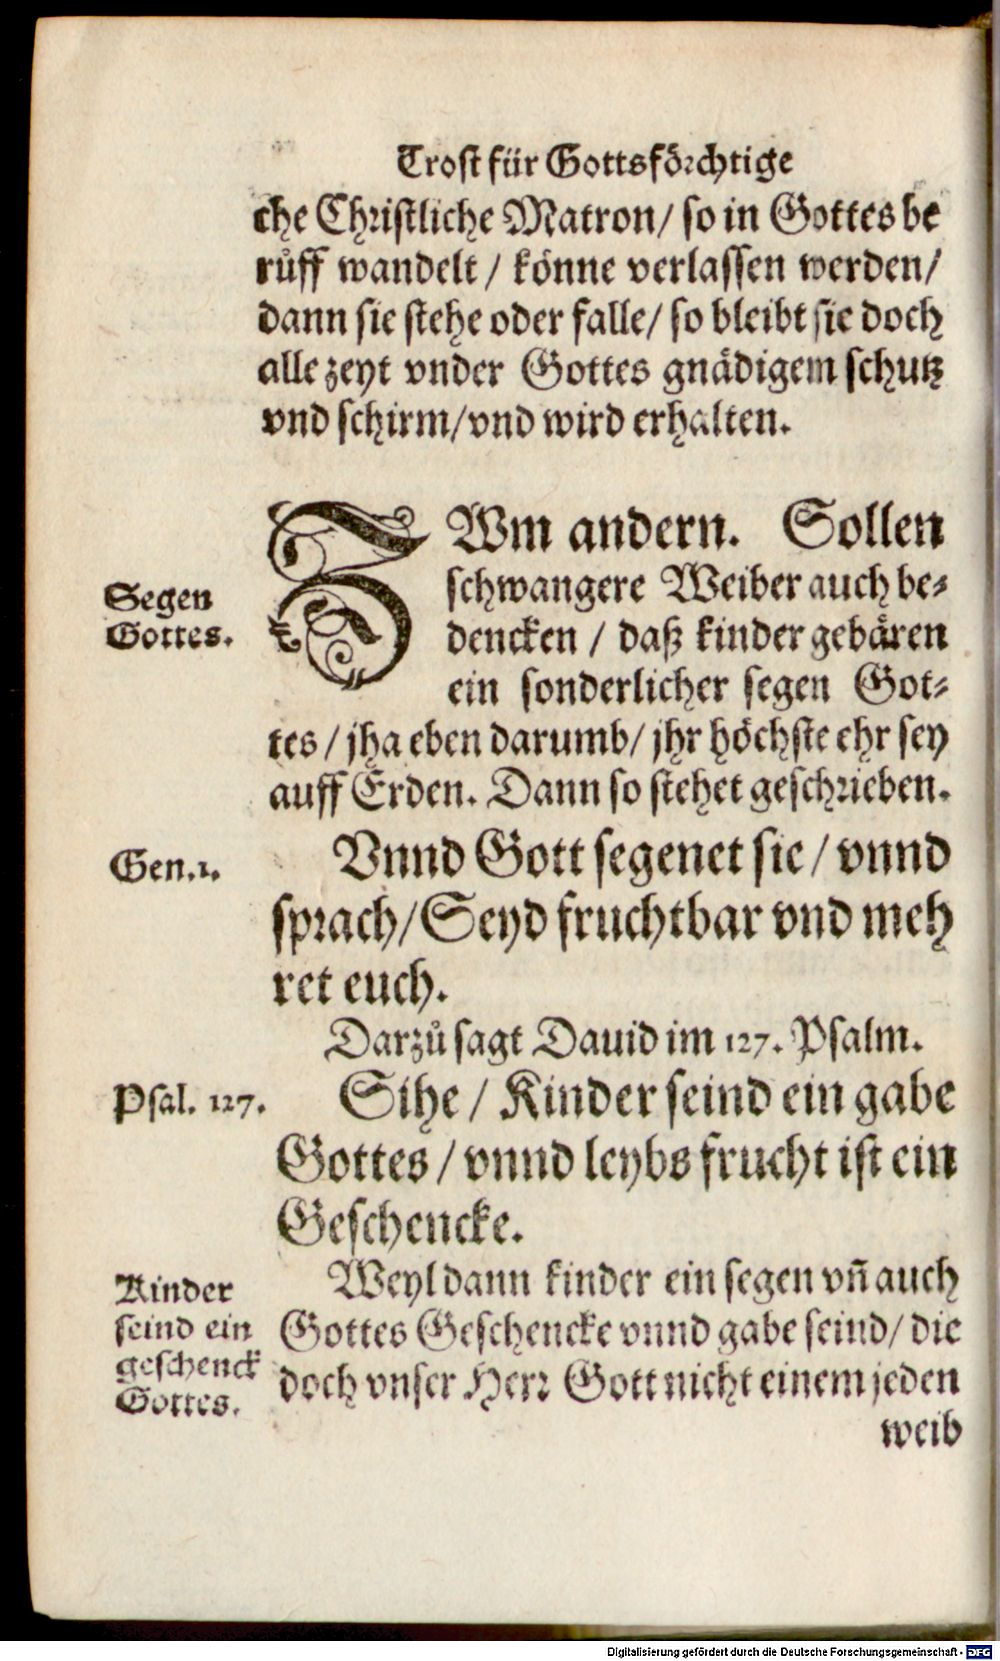 Trost für Gottsförchtige
che Christliche Matron/ so in Gottes be
růff wandelt / könne verlassen werden/
dann sie stehe oder falle/ so bleibt sie doch
alle zeyt vnder Gottes gnädigem schutz
vnd schirm/vnd wird erhalten.
ZWm andern. Sollen
schwangere Weiber auch be-
dencken / daß kinder gebären
ein sonderlicher segen Got-
tes / jha eben darumb/ jhr höchste ehr sey
auff Erden. Dann so stehet geschrieben.
Segen
Gottes.
Vnnd Gott segenet sie / vnnd
sprach/ Seyd fruchtbar vnd meh
ret euch.
Gen.1.
Darzů sagt Dauid im 127. Psalm.
Sihe / Kinder seind ein gabe
Gottes / vnnd leybs frucht ist ein
Geschencke.
Psal. 127.
Weyl dann kinder ein segen vñ auch
Gottes Geschencke vnnd gabe seind/ die
doch vnser Herr Gott nicht einem jeden
Kinder
seind ein
geschenck
Gottes.
weib
Digitalisierung gefördert durch die Deutsche Forschungsgemeinschaft - DFG